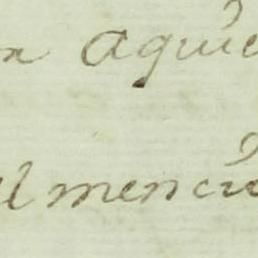 a aquie
el mencio